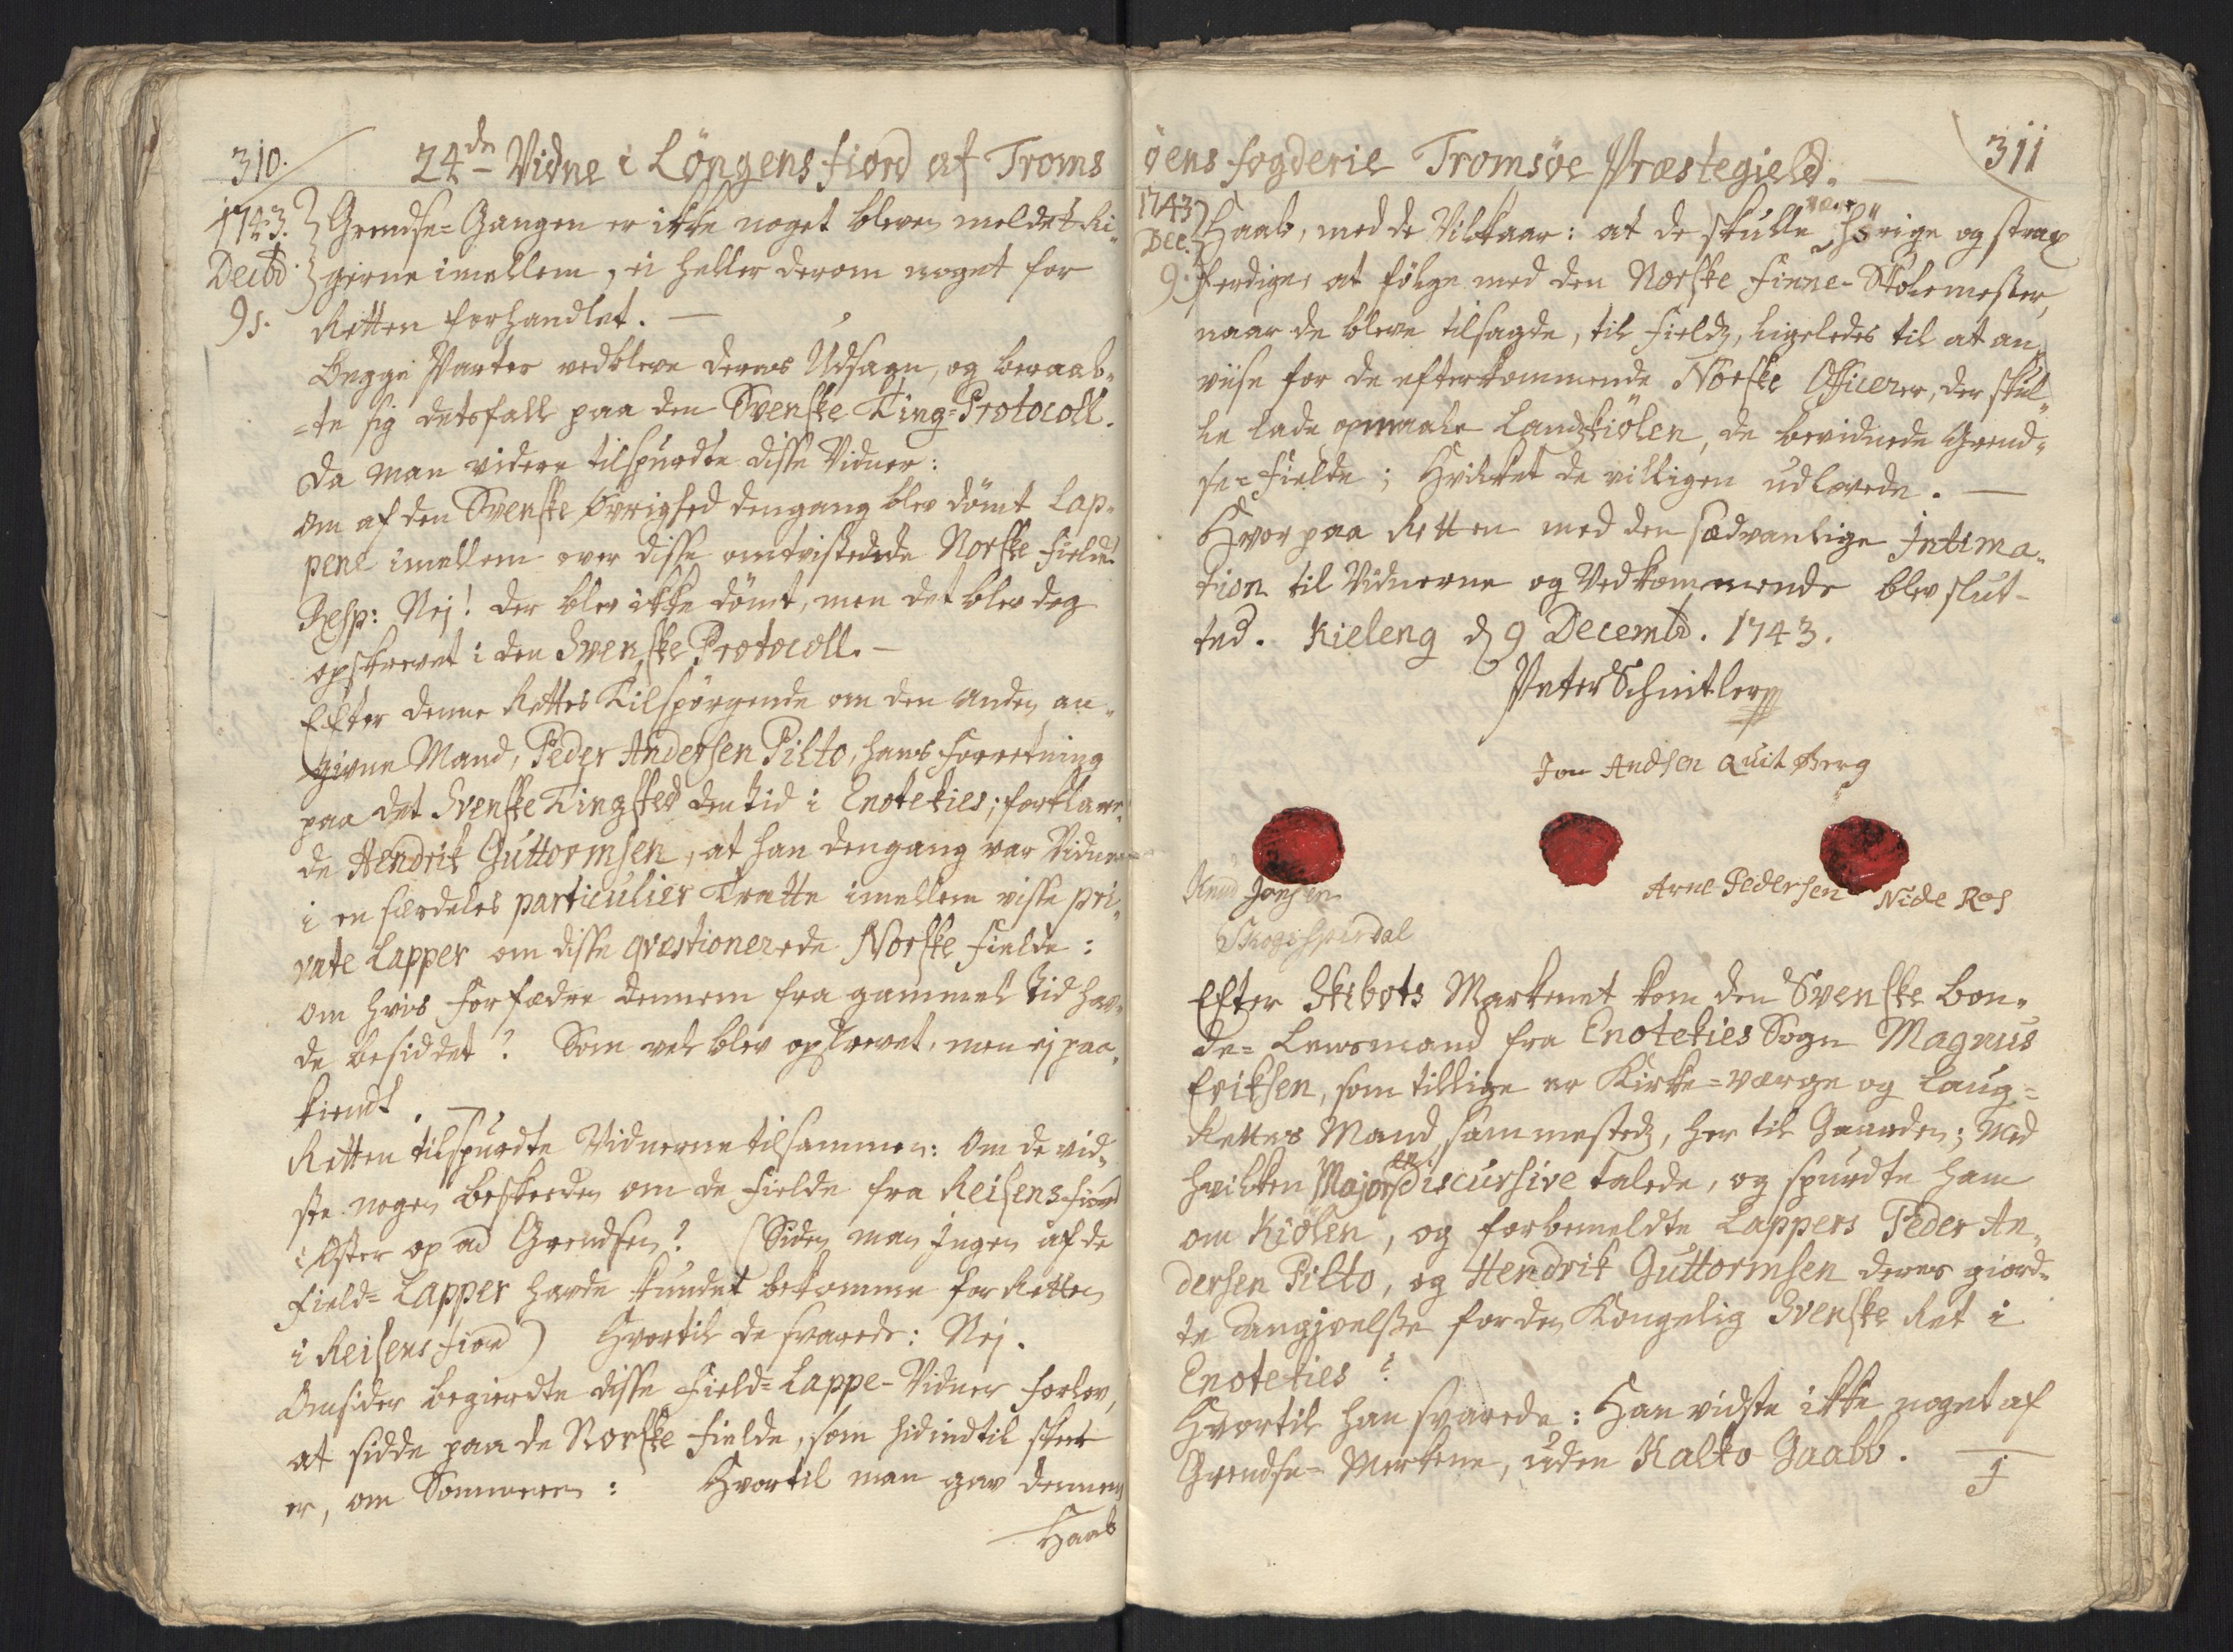 310.
24de Vidne i Löngens fiord af Troms
1743.
Decbr.
9s.
Grendse=Gangen er ikke noget bleven meldet Ri-
gerne imellem, ei heller derom noget for
Retten forhandlet. —
Begge Parter vedbleve deres Udsagn, og beraab-
=te sig detsfall paa den Svenske Ting=Protocoll.
Da man videre tilspurdte disse Vidner:
Om af den Svenske Øvrighed dengang blev dömt Lap-
pene imellem over disse omtvistede Norske Fielde?
Resp: Nej! der blev ikke dömt, men det blev dog
opskrevet i den Svenske Protocoll. —
Efter denne Rettes Tilspörgende om den anden an-
givne Mand, Peder Andersen Pilto, hans Forretning
paa det Svenske Tingsted den tid i Enotekies; forklare-
de Hendrik Guttormsen, at han dengang var Vidne
i en særdeles particulier Trætte imellem visse pri-
vate Lapper om disse qvæstionerede Norske Fielde:
om hvis Forfædre dennem fra gammel tid hav-
de besiddet? Som vel blev opskrevet, men ej paa-
kiendt. —
Retten tilspurdte Vidnerne tilsammen: Om de vid-
ste nogen beskeeden om de Fielde fra Reisens fiord
i Øster op ad Grendsen? (Siden man Ingen af de
Field=Lapper havde kundet bekomme for Retten
i Reisens fiord) Hvortil de svarede: Nej.
Omsider begierdte disse Field=Lappe-Vidner forlov,
at sidde paa de Norske Fielde, som hidindtil skeet
er, om Sommeren: Hvortil man gav dennem
Haab
öens fogderie Tromsöe Præstegield. —
311
1743
Dec.
9.
Haab, med de Vilkaar: at de skulle være hörige og strax
ferdige, at fölge med den Norske Finne-Skolemester,
naar de bleve tilsagde, til Fields, ligeledes til at an-
viise for de efterkommende Norske Officerer, der skul-
le lade opmaale Landskiölen, de bevidnede Grend-
se=Fielde; Hvilket de villigen udlovede. —
Hvorpaa Retten med den sædvanlige Intima-
tion til Vidnerne og Vedkommende blev slut-
ted. Kieleng d 9 Decembr. 1743.
Peter Schnitler
Jon Andsen Quit Berg
Knud Jonsen
Arne Pedersen Nide Ros
Skogispirdal
Efter Skibots Markenet kom den Svenske bon-
de=Lensmand fra Enotekies Sogn Magnus
Eriksen, som tillige er Kirke=værge og Laug=
Rettes Mand sammesteds, her til Gaarden; med
hvilken Majoren discursive talede, og spurdte ham
om Kiölen, og forbemeldte Lappers Peder An-
dersen Pilto, og Hendrik Guttormsen deres giord-
te Angivelsse for den Kongelig Svenske Ret i
Enotekies?
Hvortil han svarede: Han vidste ikke noget af
Grendse=Merkene, uden Kalko Gaabb. —